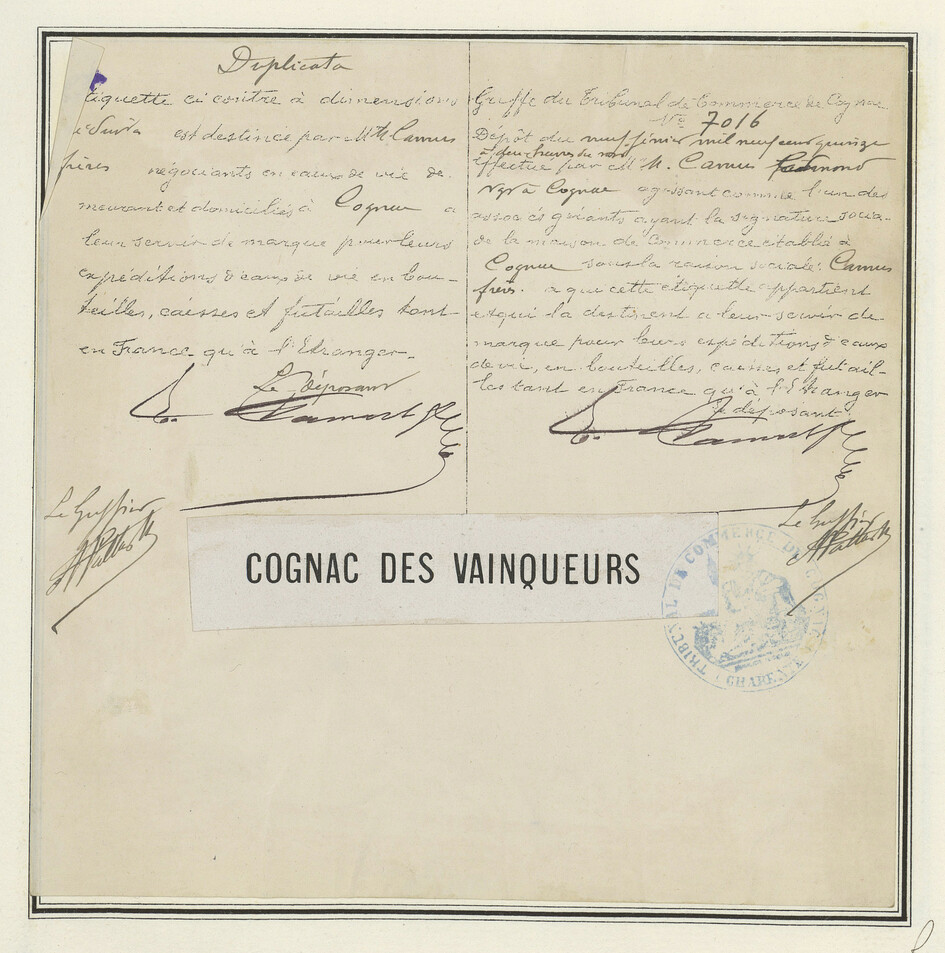 Duplicata
étiquette ci contre à dimensions
est destinée par MM Camus
frères négociants en eaux de vie de-
meurant et domiciliés à Cognac a
leur servir de marque pour leurs
expéditions d'eaux de vie en bou-
teilles, caisses et futailles tant
en France qu'à l'Etranger.
Le Déposant
Le Greffier
Greffe du Tribunal de Commerce de Cognac
No 7016
Dépôt du neuf février mil neuf cent quinze
à deux heures du soir
effectué par M. Camus Edmond
Ngt à Cognac agissant comme l'un des
associés gérants ayant la signature socia-
de la maison de Commerce établie à
Cognac sous la raison sociale: Camus
frères. a qui cette étiquette appartient
et qui la destinent a leur servir de
marque pour leurs expéditions d'eaux
de vie, en bouteilles, caisses et futail-
les tant en France qu'à l'Etranger
Le déposant
Le Greffier
COGNAC DES VAINQUEURS
TRIBUNAL DE COMMERCE DE COGNAC
CHARENTE